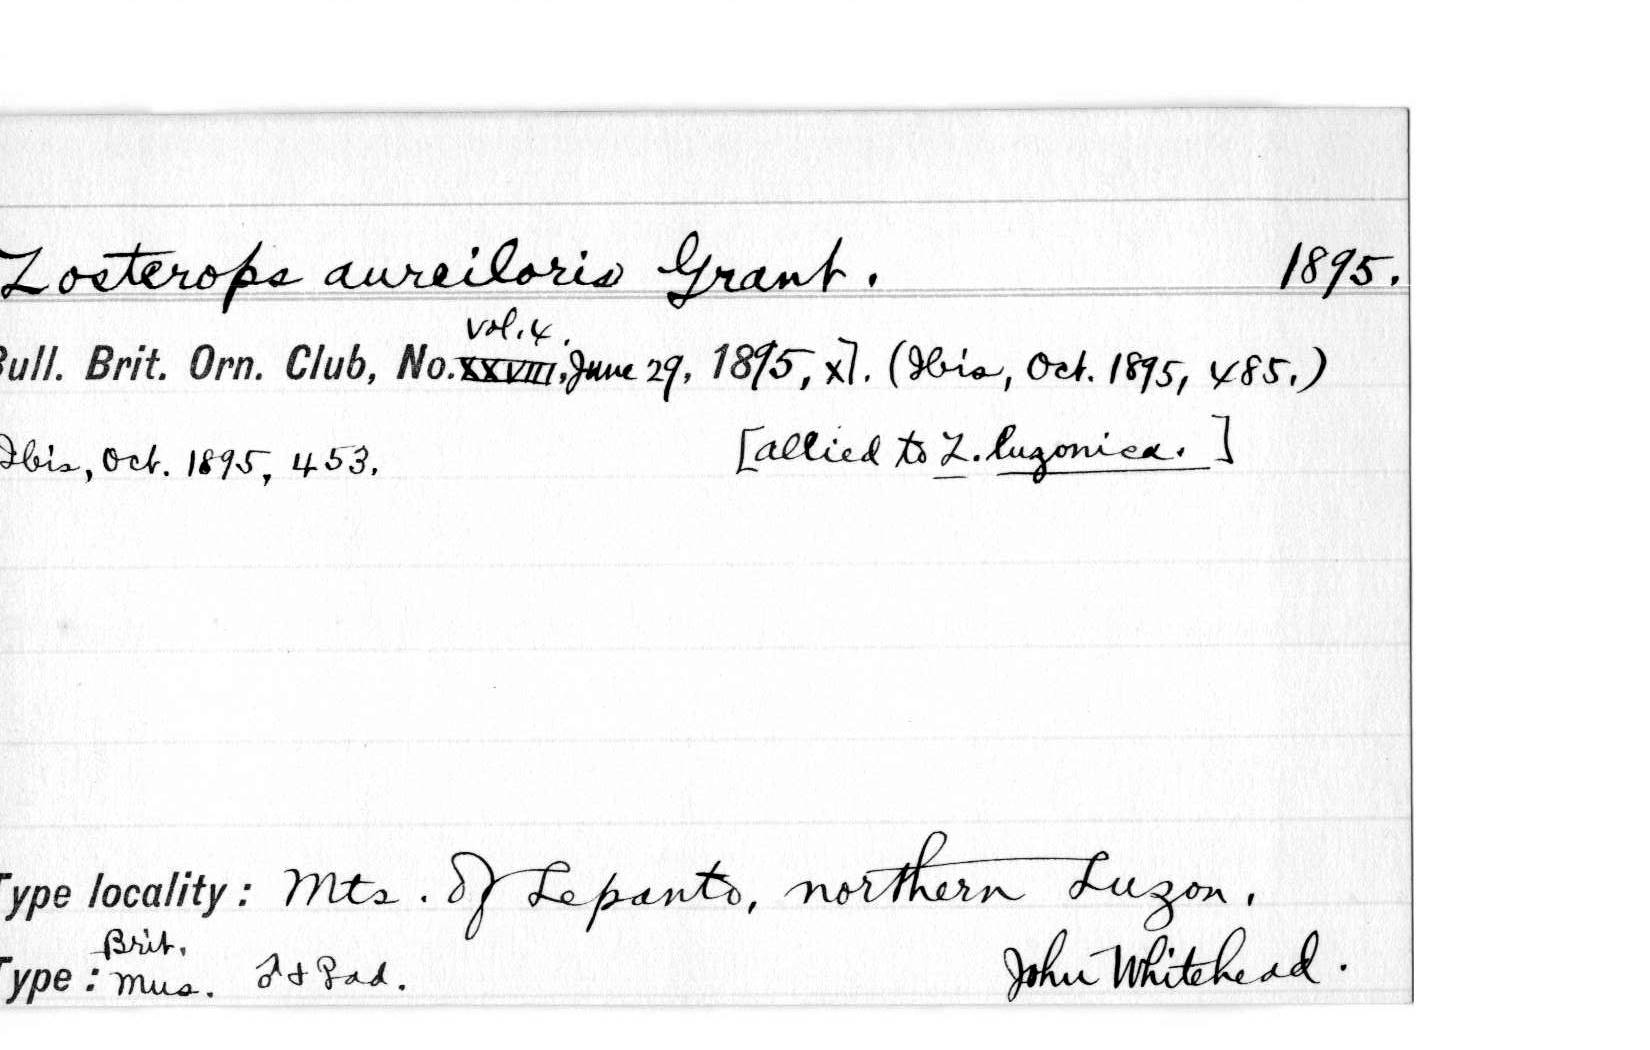 Zosterops aureiloris Grant. 1895.
vol. 4.
Bull. Brit. Orn. Club, No. XXVIII. June 29, 1895, xl. (Ibis, Oct. 1895, 485.)
Ibis, Oct. 1895, 453. [allied to Z. luzonica.]
Type locality: Mts. of Lepanto, northern Luzon.
Brit.
Type: Mus. ♂ & ♀ ad. John Whitehead.